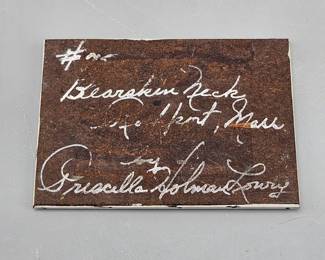 Bearskin Neck
Rockport, Mass
by
Priscilla Holman Lowry